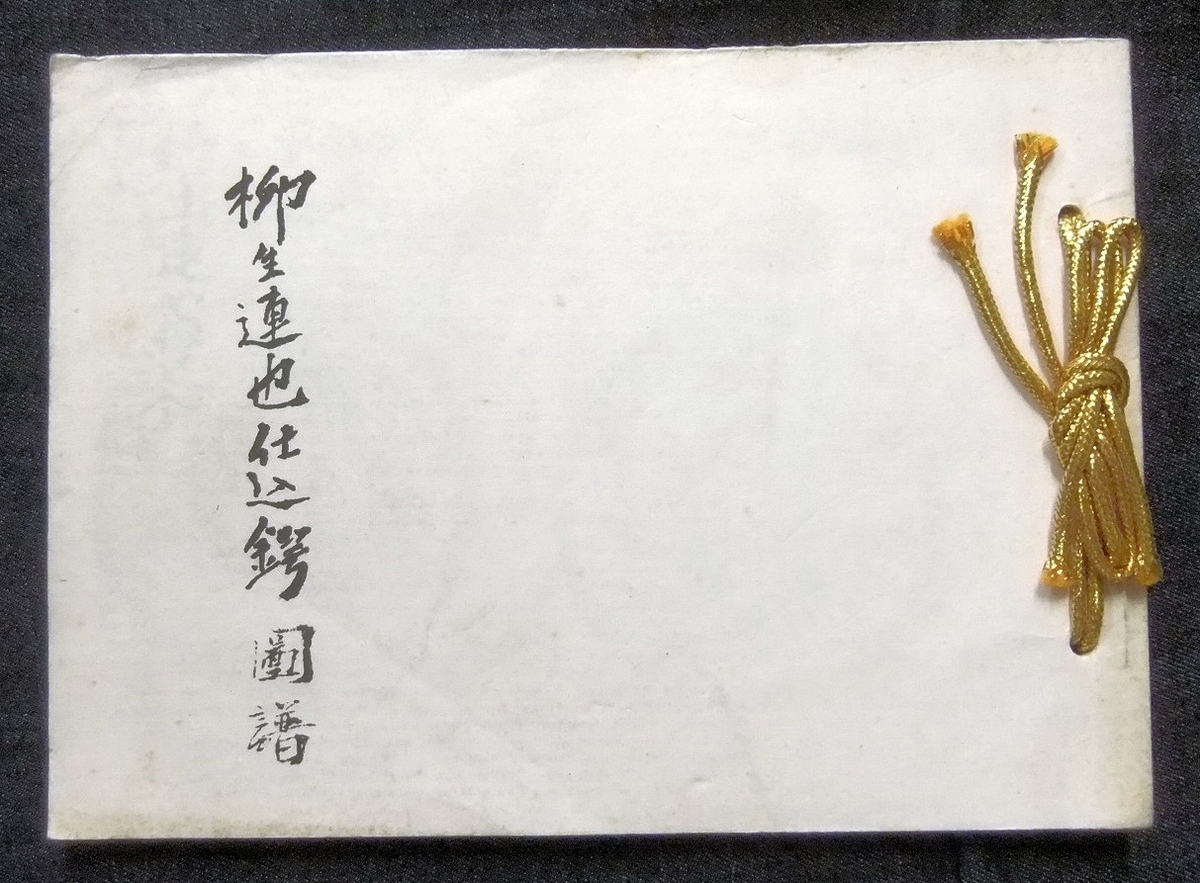 柳生連也仕込鍔圖譜